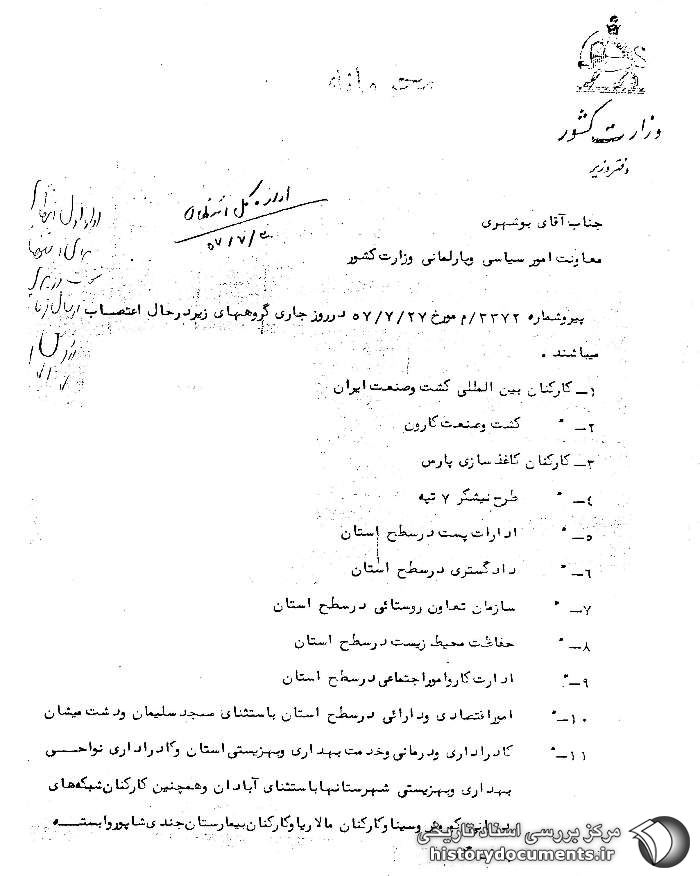 محرمانه
وزارت کشور
دفتر وزیر
اداره کل انتظامی
۵۷/۷/
جناب آقای بوشهری
معاونت امور سیاسی وپارلمانی وزارت کشور
پیروشماره ۲۳۷۲/م مورخ ۵۷/۷/۲۷ درروز جاری گروههای زیردرحال اعتصاب
میباشند .
۱ــ کارکنان بین المللی کشت وصنعت ایران
۲ــ " کشت وصنعت کارون
۳ــ کارکنان کاغذ سازی پارس
۴ــ " طرح نیشکر ۷ تپه
۵ــ " ادارات پست درسطح استان
۶ــ " دادگستری درسطح استان
۷ــ " سازمان تعاون روستائی درسطح استان
۸ــ " حفاظت محیط زیست درسطح استان
۹ــ " ادارت کاروامور اجتماعی درسطح استان
۱۰ــ " امور اقتصادی ودارائی درسطح استان باستثنای مسجد سلیمان ودشت میشان
۱۱ــ " کادراداری ودرمانی وخدمت بهداری وبهزیستی استان وکادراداری نواحی
بهداری وبهزیستی شهرستانها باستثنای آبادان وهمچنین کارکنان شبکه های
وسینا وکارکنان مالاریا وکارکنان بیمارستان جندی شاپور وابسته
مرکز بررسی اسناد تاریخی
historydocuments.ir